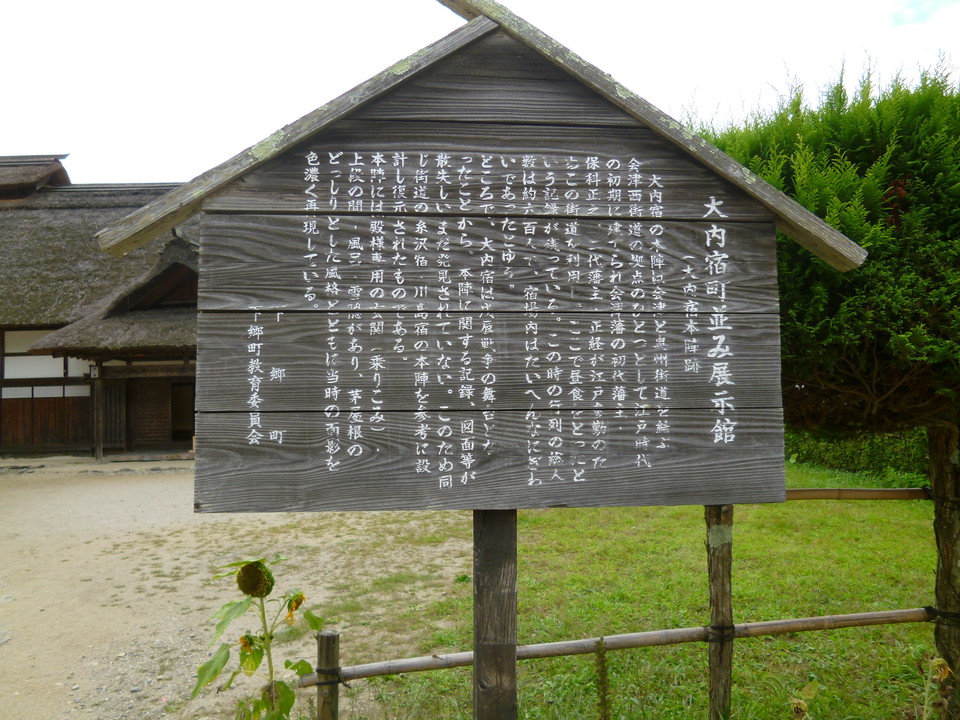 大内宿町並み展示館
(大内宿本陣跡)
大内宿の本陣は会津と奥州街道を結ぶ
会津西街道の拠点のひとつとして江戸時代
の初期に建てられ会津藩の初代藩主
保科正之、二代藩主、正経が江戸参勤のた
めこの街道を利用し、ここで昼食をとったと
いう記録が残っている。この時の行列の総人
数は約六百人で、宿場内はたいへんなにぎわ
いであったでゆろ。
ところで、大内宿は戊辰戦争の舞台とな
ったことから、本陣に関する記録、図面等が
散失しいまだ発見されていない。このため同
じ街道の糸沢宿、川島宿の本陣を参考に設
計し復元されたものである。
本陣には殿様専用の玄関(乗りこみ)、
上段の間、風呂、雪隠があり、茅屋根の
どっしりとした風格とともに当時の面影を
色濃く再現している。
下郷町
下郷町教育委員会